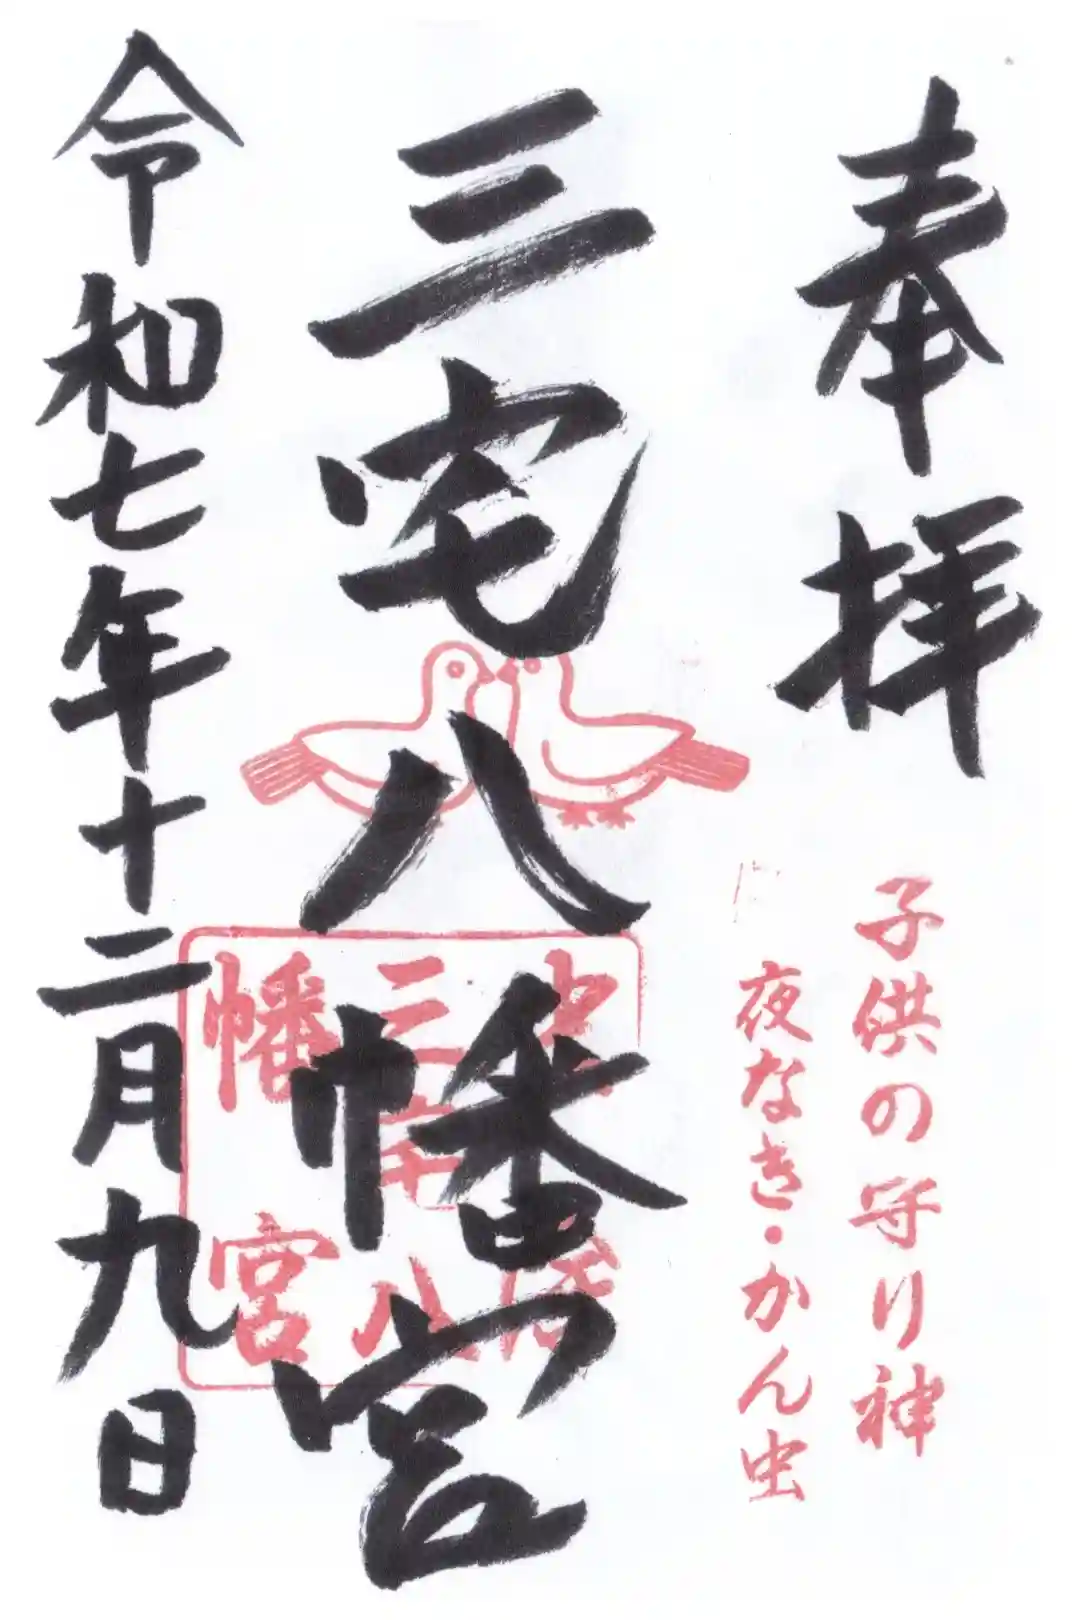 奉拝
子供の守り神
夜なき・かん虫
三宅八幡宮
三宅八
幡宮
令和七年十二月九日